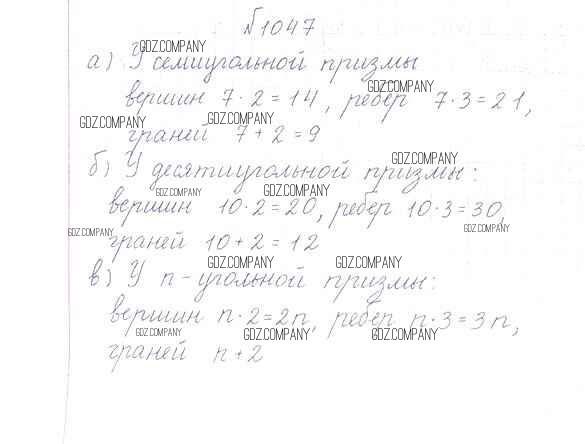 №1047
а) У семиугольной призмы
вершин 7·2=14, ребер 7·3=21,
граней 7+2=9
б) У десятиугольной призмы:
вершин 10·2=20, ребер 10·3=30,
граней 10+2=12
в) У n-угольной призмы:
вершин n·2=2n, ребер n·3=3n,
граней n+2
GDZ.COMPANY
GDZ.COMPANY
GDZ.COMPANY
GDZ.COMPANY
GDZ.COMPANY
GDZ.COMPANY
GDZ.COMPANY
GDZ.COMPANY
GDZ.COMPANY
GDZ.COMPANY
GDZ.COMPANY
GDZ.COMPANY
GDZ.COMPANY
GDZ.COMPANY